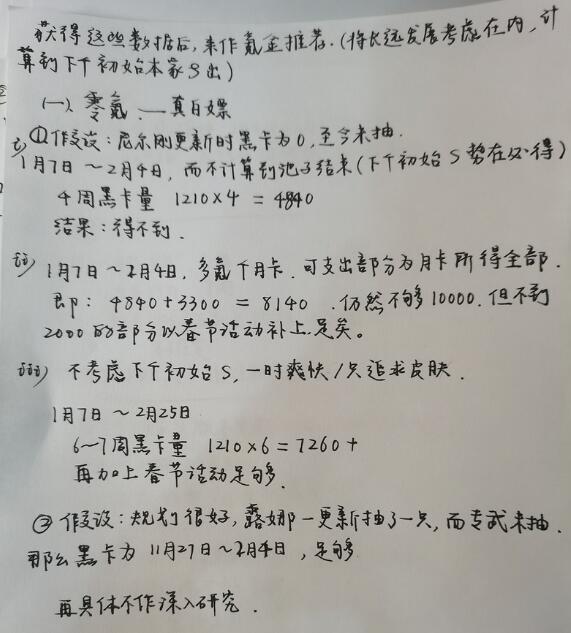 获得这些数据后,来作氪金推荐.(将长远发展考虑在内,计
算到下个初始本家S出)
(一)、零氪 — 真白嫖
i) ①假设:尼尔刚更新时黑卡为0,至今未抽.
1月7日~2月4日,而不计算到池子结束(下个初始S势在必得)
4周黑卡量 1210×4 = 4840
结果:得不到.
ii) 1月7日~2月4日,多氪个月卡.可支出部分为月卡所得全部.
即: 4840+3300 = 8140 .仍然不够10000.但不到
2000的部分以春节活动补上足矣。
iii) 不考虑下个初始S,一时爽快/只追求皮肤.
1月7日~2月25日
6~7周黑卡量 1210×6=7260+
再加上春节活动足够.
② 假设:规划很好,露娜一更新抽了一只,而专武未抽.
那么黑卡为 11月27日~2月4日,足够
再具体不作深入研究.